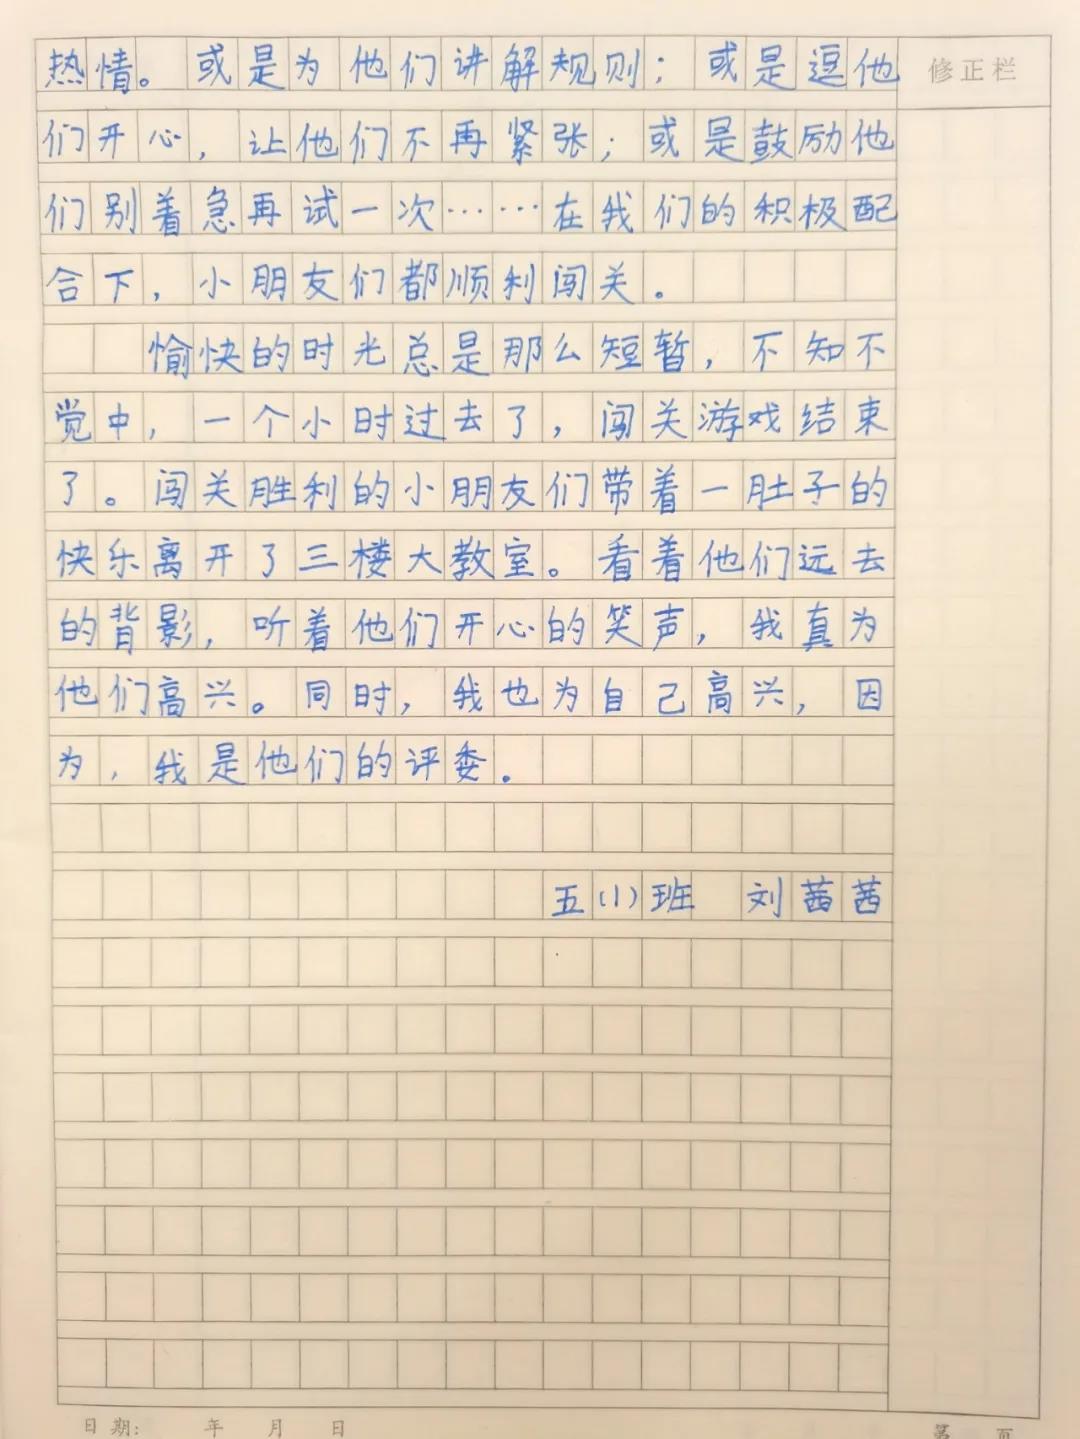 热情。或是为他们讲解规则；或是逗他
修正栏
们开心，让他们不再紧张；或是鼓励他
们别着急再试一次……在我们的积极配
合下，小朋友们都顺利闯关。
愉快的时光总是那么短暂，不知不
觉中，一个小时过去了，闯关游戏结束
了。闯关胜利的小朋友们带着一肚子的
快乐离开了三楼大教室。看着他们远去
的背影，听着他们开心的笑声，我真为
他们高兴。同时，我也为自己高兴，因
为，我是他们的评委。
五(1)班 刘茜茜
日期： 年 月 日
第 页